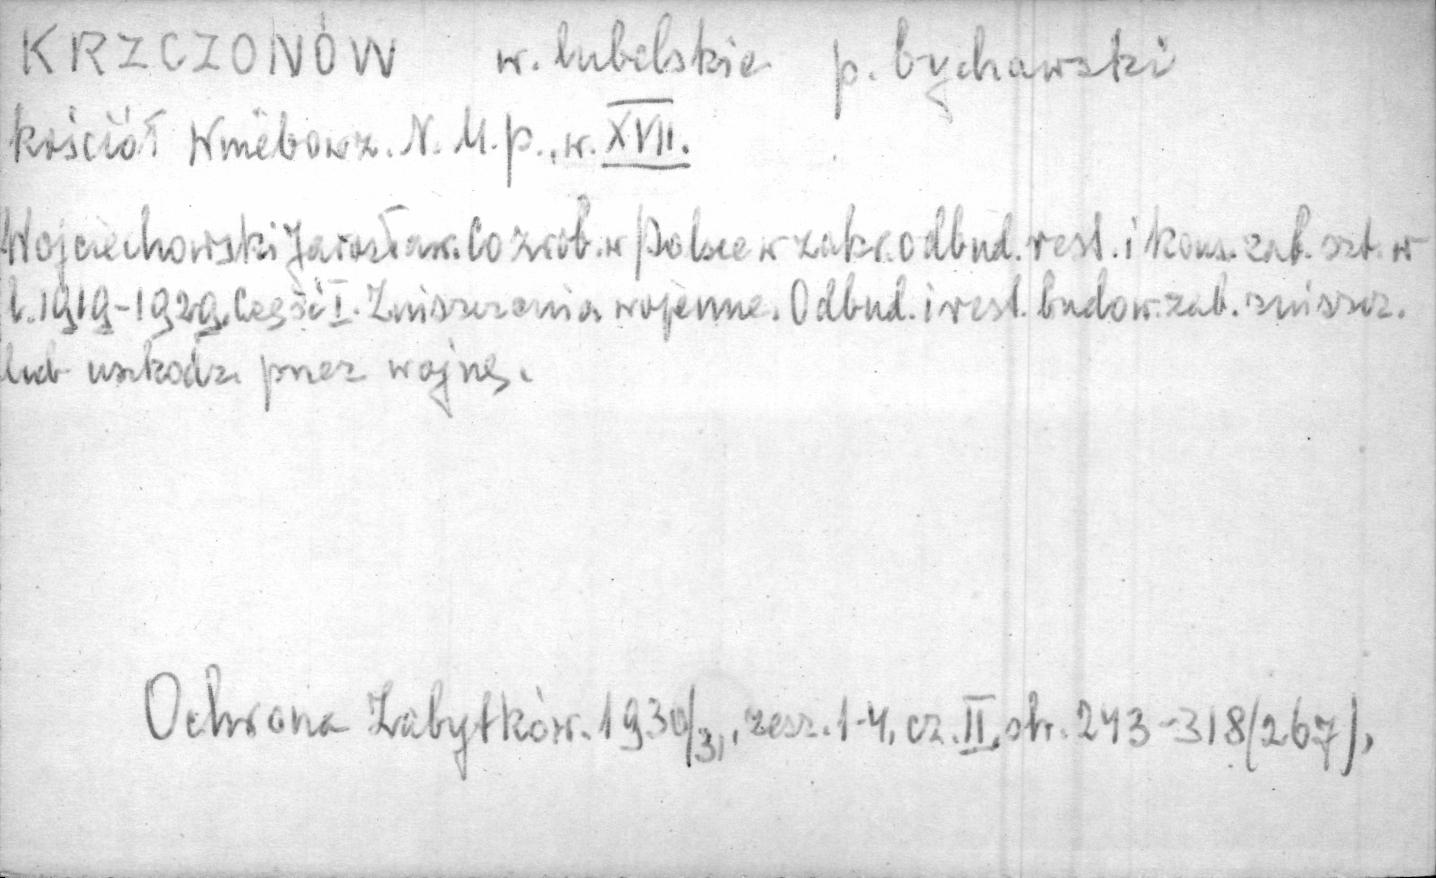 KRZCZONÓW w. lubelskie p. bychawski
kościół Wniebowz. N. M. P., w. XVII.
Wojciechowski Jarosław. Co zrob. w Polsce w zakr. odbud. rest. i kons. zab. szt. w
l. 1919-1929. Część I. Zniszczenia wojenne. Odbud. i rest. budow. zab. zniszcz.
lub uszkodz. przez wojnę.
Ochrona Zabytków. 1930/31, zesz. 1-4, cz. II, str. 243-318 (267),